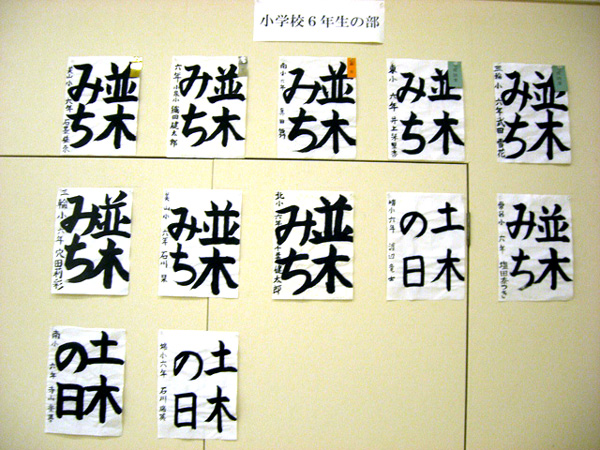 小学校6年生の部
並木
みち
六年
並木
みち
六年
並木
みち
南小六年
並木
みち
東小 六年 井上
並木
みち
三輪小 六年 武田 雪花
並木
みち
三輪小 六年
並木
みち
美山小 六年 石川
並木
みち
北小六年 健太郎
土木
の日
小六年 渡辺
並木
みち
六年
土木
の日
南小 六年 寺山
土木
の日
小六年 石川